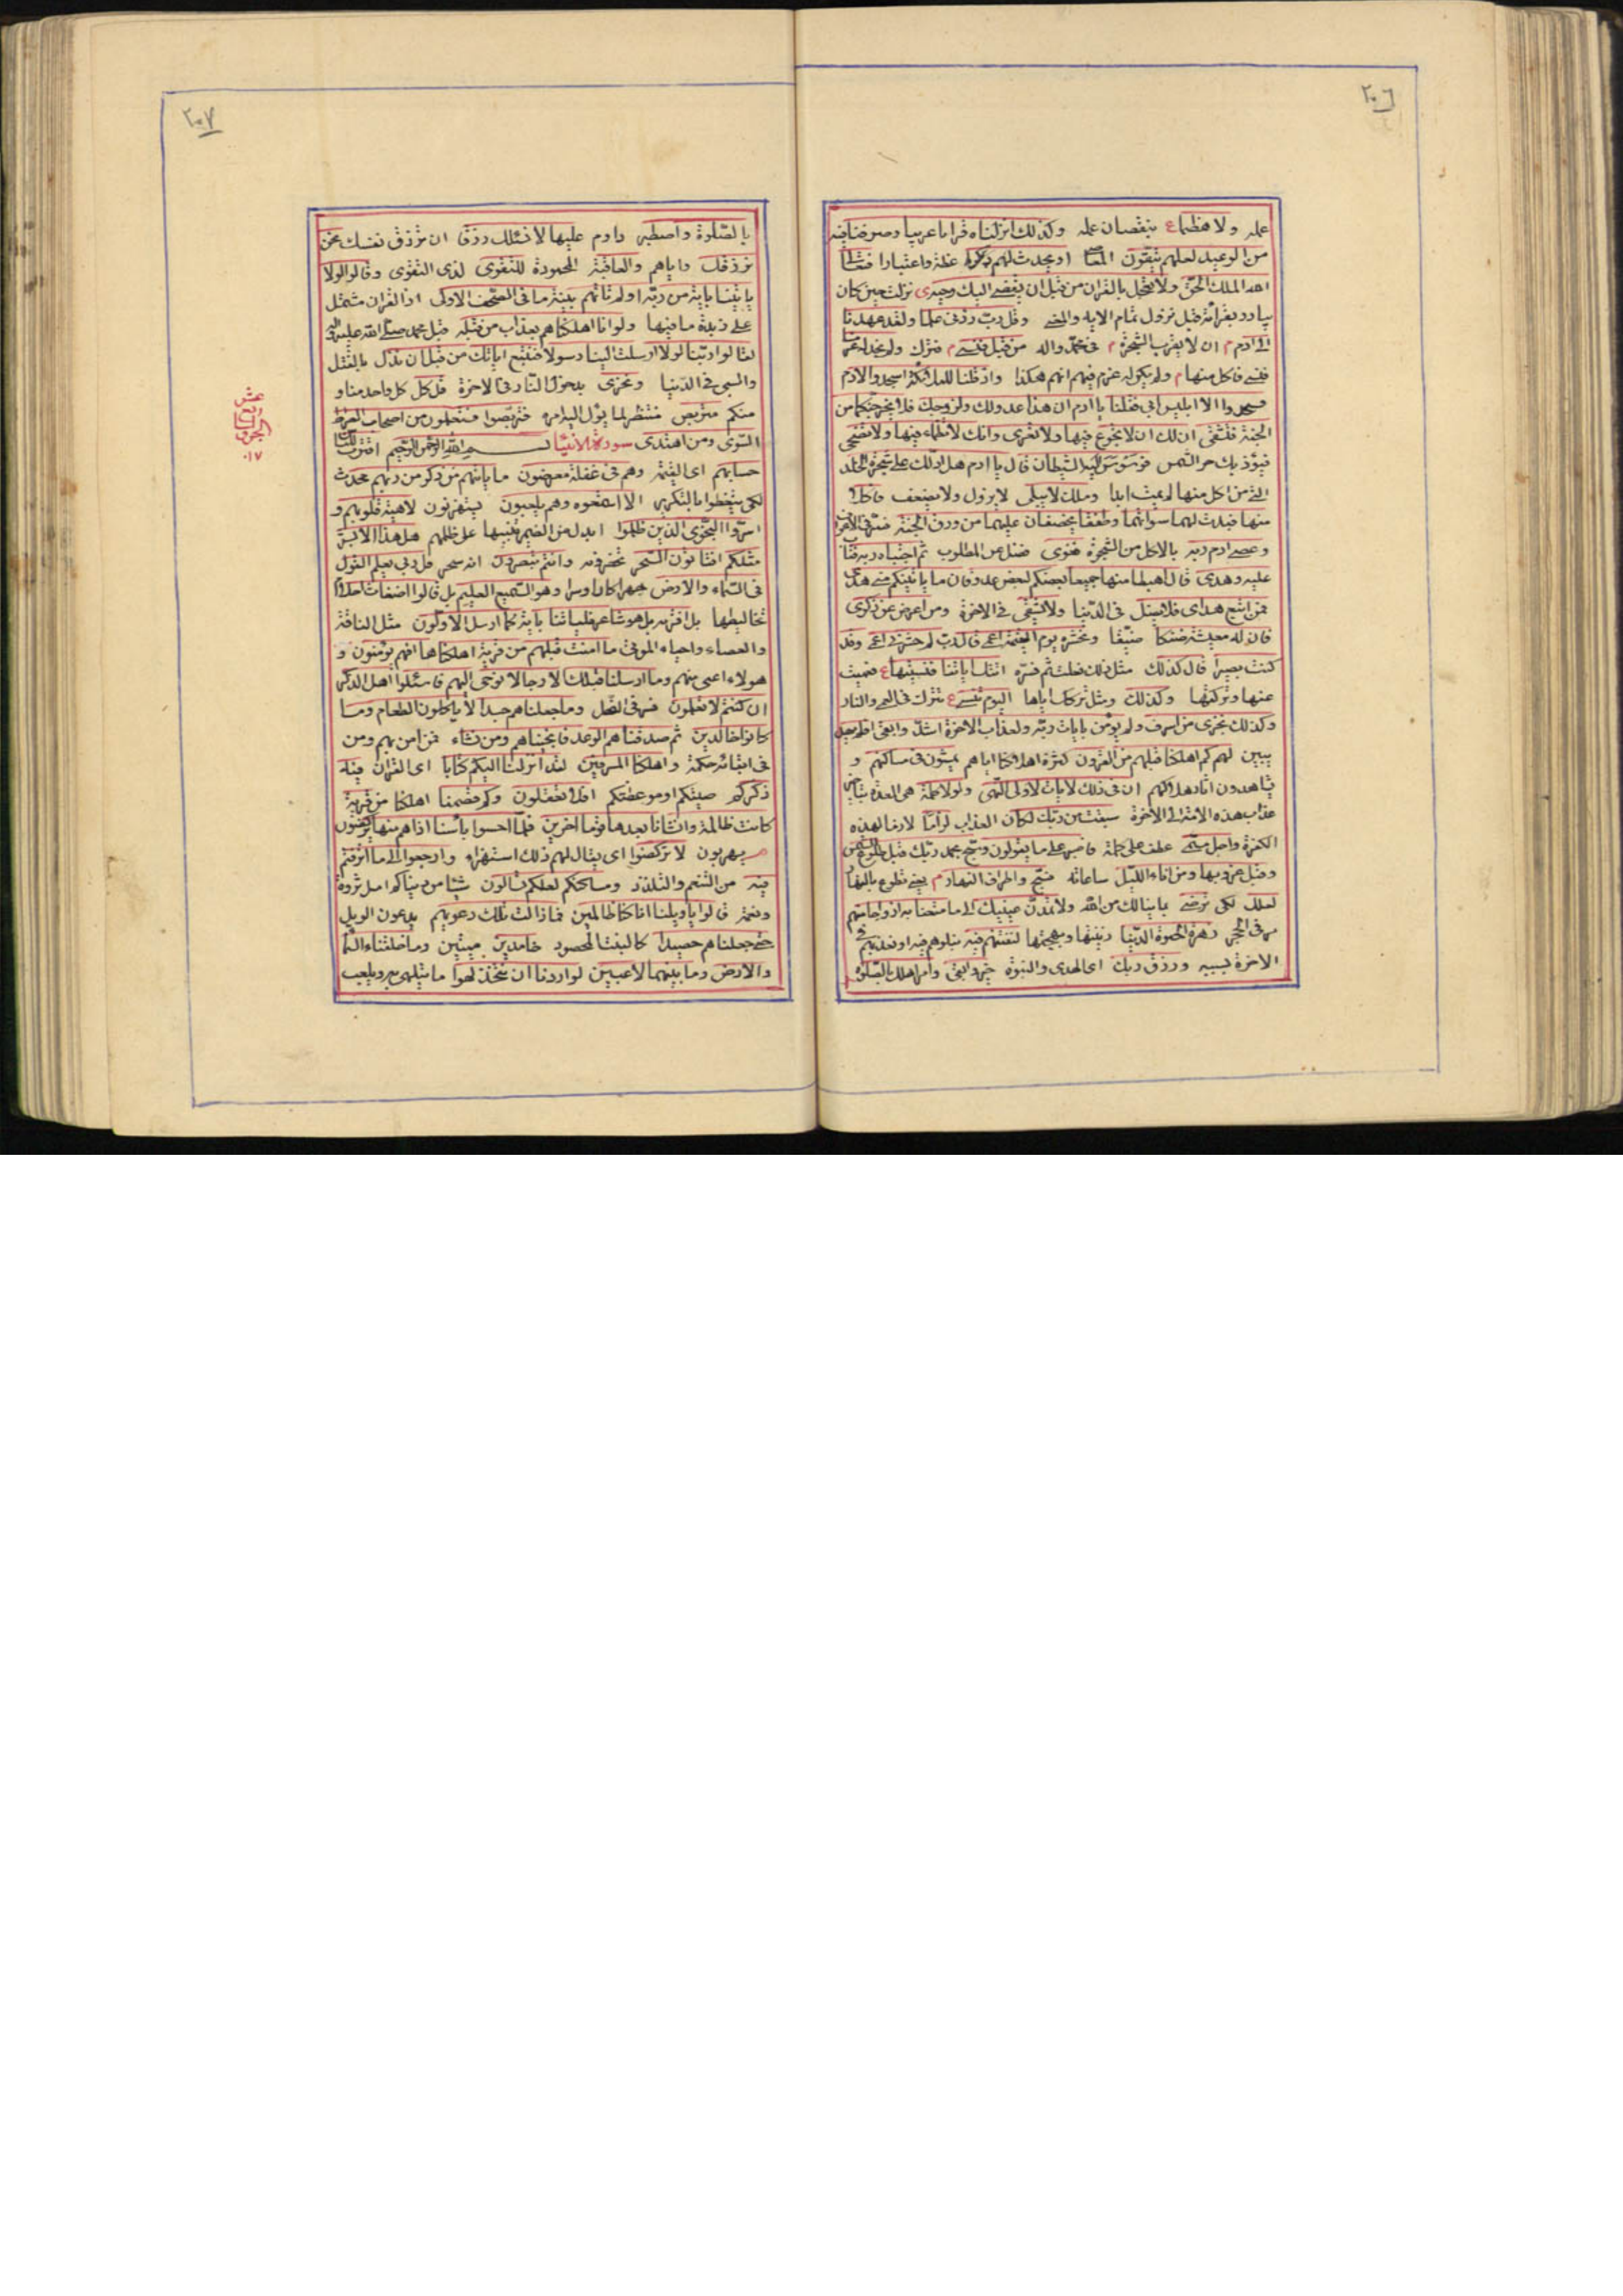 ٢٠٦
عمله ولا هظما ع بنقصان عمله وكذلك انزلناه قرانا عربيا وصرفنا فيه
من الوعيد لعلهم يتقون المعاصي او يحدث لهم ذكرا عظة واعتبارا فتعالى
الله الملك الحق ولا تعجل بالقران من قبل ان يقضى اليك وحيه ى نزلت حين كان
يبادر بقرائته قبل نزول تمام الاية والمعنى وقل رب زدنى علما ولقد عهدنا
الى ادم م ان لا يقرب الشجرة م فى محمد واله من قبل فنسى م فترك ولم نجد له عزما
فنسى فاكل منها م ولم يكن له عزم فيهم انهم هكذا واذ قلنا للملئكة اسجدوا لادم
فسجدوا الا ابليس ابى فقلنا يا ادم ان هذا عدو لك ولزوجك فلا يخرجنكما من
الجنة فتشقى ان لك ان لا تجوع فيها ولا تعرى وانك لا تظماء فيها ولا تضحى
فيؤذيك حر الشمس فوسوس اليه الشيطان قال يا ادم هل ادلك على شجرة الخلد
التى من اكل منها لم يمت ابدا وملك لا يبلى لا يزول ولا يضعف فاكلا
منها فبدت لهما سواتهما وطفقا يخصفان عليهما من ورق الجنة فسر فى الاعراف
وعصى ادم ربه بالاكل من الشجرة فغوى فضل عن المطلوب ثم اجتباه ربه فتاب
عليه وهدى قال اهبطا منها جميعا بعضكم لبعض عدو فان ما ياتينكم منى هدى
فمن اتبع هداى فلا يضل فى الدنيا ولا يشقى فى الاخرة ومن اعرض عن ذكرى
فان له معيشة ضنكا ضيقا ونحشره يوم القيمة اعمى قال رب لم حشرتنى اعمى وقد
كنت بصيرا قال كذلك مثل ذلك فعلت ثم فسره اتتك اياتنا فنسيتها ع فعميت
عنها وتركتها وكذلك ومثل تركك اياها اليوم تنسى ع تترك فى العمى والنار
وكذلك نجزى من اسرف ولم يؤمن بايات ربه ولعذاب الاخرة اشد وابقى افلم يهد
يبين لهم كم اهلكنا قبلهم من القرون كثرة اهلاكنا اياهم يمشون فى مساكنهم و
يشاهدون اثار هلاكهم ان فى ذلك لايات لاولى النهى ولولا كلمة هى العدة بتاخير
عذاب هذه الامة الى الاخرة سبقت من ربك لكان العذاب لزاما لازما لهذه
الكفرة واجل مسمى عطف على كلمة فاصبر على ما يقولون وسبح بحمد ربك قبل طلوع الشمس
وقبل غروبها ومن اناء الليل ساعاته فسبح واطراف النهار م يعنى تطوع بالنهار
لعلك لكى ترضى بما ينالك من الله ولا تمدن عينيك الى ما متعنا به ازواجا منهم
مر فى الحجر زهرة الحيوة الدنيا زينتها وبهجتها لنفتنهم فيه نبلوهم فيه او نعذبهم فى
الاخرة بسببه ورزق ربك اى الهدى والنبوة خير وابقى وامر اهلك بالصلوة
٢٠٧
بالصلوة واصطبر وادم عليها لا نسئلك رزقا ان ترزق نفسك نحن
نرزقك واياهم والعاقبة المحمودة للتقوى لذى التقوى وقالوا لولا
ياتينا باية من ربه اولم تاتهم بينة ما فى الصحف الاولى اذ القران مشتمل
على زبدة ما فيها ولو انا اهلكناهم بعذاب من قبله قبل محمد صلى الله عليه واله
لقالوا ربنا لولا ارسلت الينا رسولا فنتبع اياتك من قبل ان نذل بالقتل
والسبى فى الدنيا ونخزى بدخول النار فى الاخرة قل كل كل واحد منا و
منكم متربص منتظر لما يؤل اليه امره فتربصوا فستعلمون من اصحاب الصراط
السوى ومن اهتدى سورة الانبياء بسم الله الرحمن الرحيم اقترب للناس
حسابهم اى القيمة وهم فى غفلة معرضون ما ياتيهم من ذكر من ربهم محدث
لكى يتعظوا بالتكرير الا استمعوه وهم يلعبون يستهزئون لاهية قلوبهم و
اسروا النجوى الذين ظلموا ابدل من الضمير تنبيها على ظلمهم هل هذا الا بشر
مثلكم افتاتون السحر تحضرونه وانتم تبصرون انه سحر قل ربى يعلم القول
فى السماء والارض جهرا كان او سرا وهو السميع العليم بل قالوا اضغاث احلام
تخاليطها بل افتريه بل هو شاعر فلياتنا باية كما ارسل الاولون مثل الناقة
والعصاء واحياء الموتى ما امنت قبلهم من قرية اهلكناها افهم يؤمنون و
هولاء اعتى منهم وما ارسلنا قبلك الا رجالا نوحى اليهم فاسئلوا اهل الذكر
ان كنتم لا تعلمون فسر فى النحل وما جعلناهم جسدا لا ياكلون الطعام وما
كانوا خالدين ثم صدقناهم الوعد فانجيناهم ومن نشاء ممن امن بهم ومن
فى ابقائه حكمة واهلكنا المسرفين لقد انزلنا اليكم كتابا اى القران فيه
ذكركم صيتكم او موعظتكم افلا تعقلون وكم قصمنا اهلكنا من قرية
كانت ظالمة وانشانا بعدها قوما اخرين فلما احسوا باسنا اذا هم منها يركضون
يهربون لا تركضوا اى يقال لهم ذلك استهزاء وارجعوا الى ما اترفتم
فيه من التنعم والتلذذ ومساكنكم لعلكم تسالون شيئا من دنياكم اهل ثروة
ونعمة قالوا يا ويلنا انا كنا ظالمين فما زالت تلك دعويهم يدعون الويل
حتى جعلناهم حصيدا كالنبت المحصود خامدين ميتين وما خلقنا السماء
والارض وما بينهما لاعبين لو اردنا ان نتخذ لهوا ما يتلهى به ويلعب
الجزو
السابع
عشر
١٧